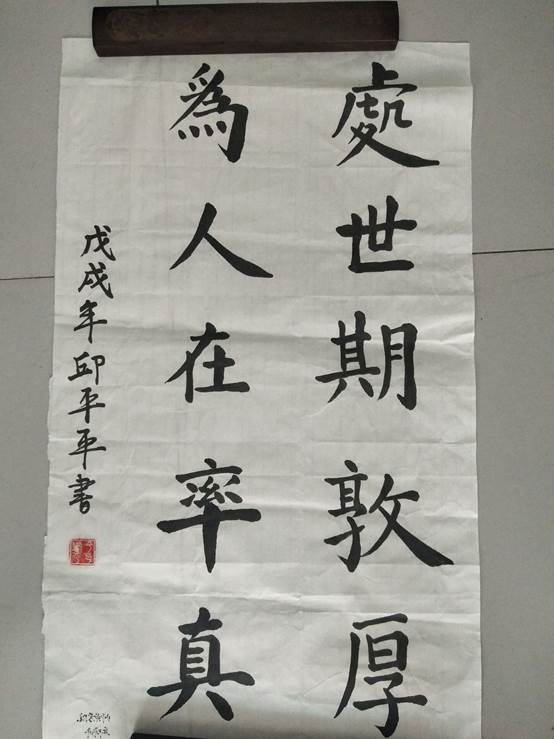 處世期敦厚
爲人在率真
戊戌年邱平平書